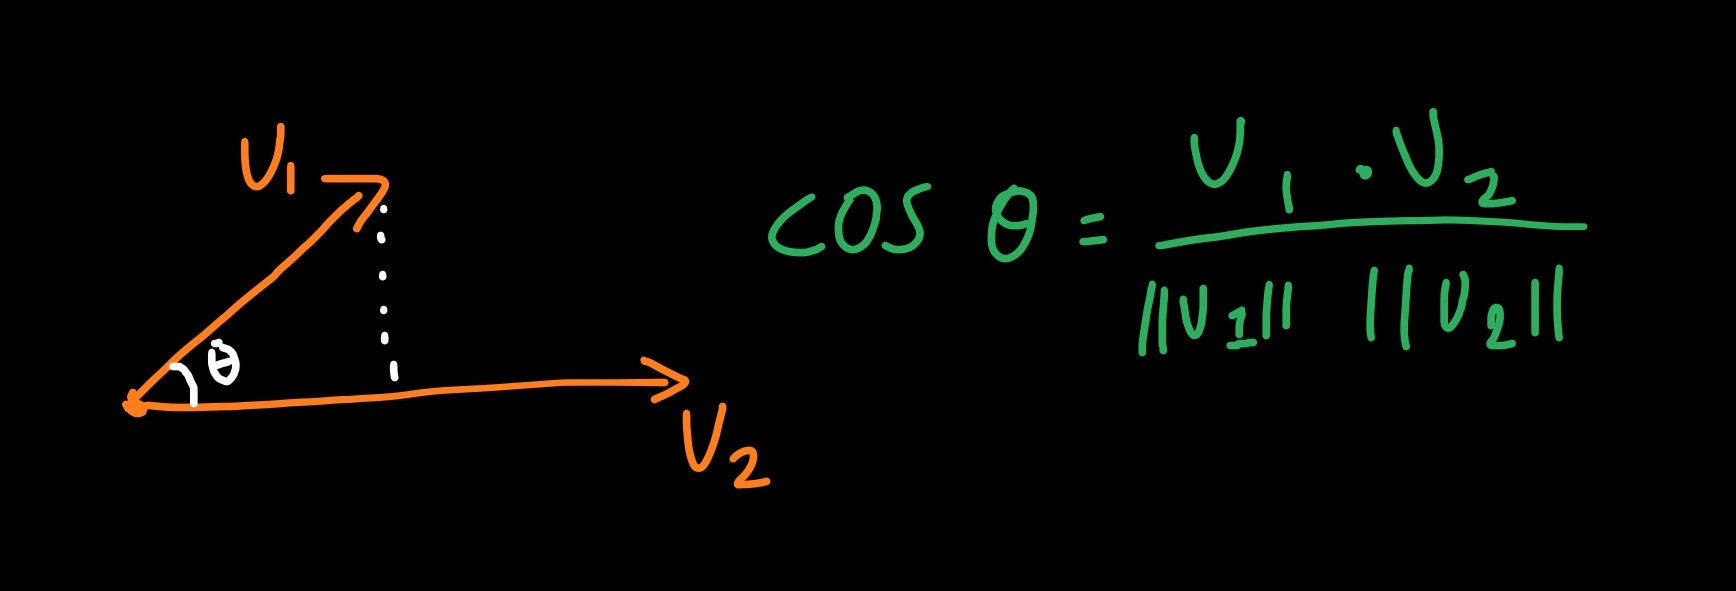 V₁
θ
V₂
cos θ = V₁ · V₂ / ||V₁|| ||V₂||